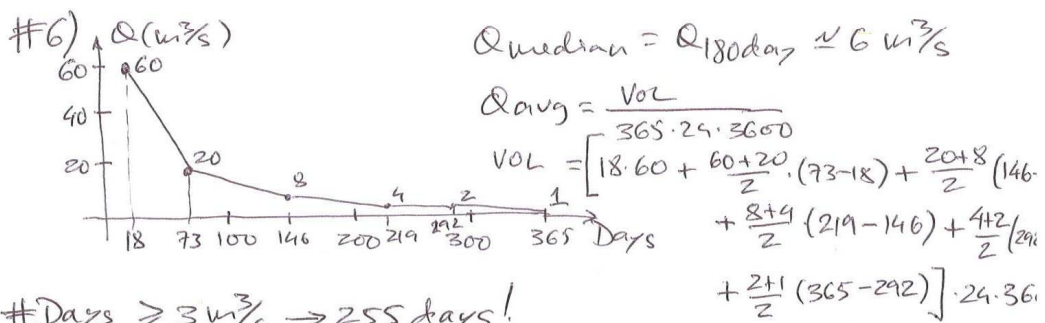 #6)
Q(m³/s)
60
60
40
20
20
8
4
2
1
18 73 100 146 200 219 292 300 365 Days
Qmedian = Q180day ≃ 6 m³/s
Qavg = VOL / 365·24·3600
VOL = [18·60 + 60+20/2 ·(73-18) + 20+8/2 (146-
+ 8+4/2 ·(219-146) + 4+2/2 (292
+ 2+1/2 (365-292)]·24·36
#Days ≥ 3 m³/s → 255 days!